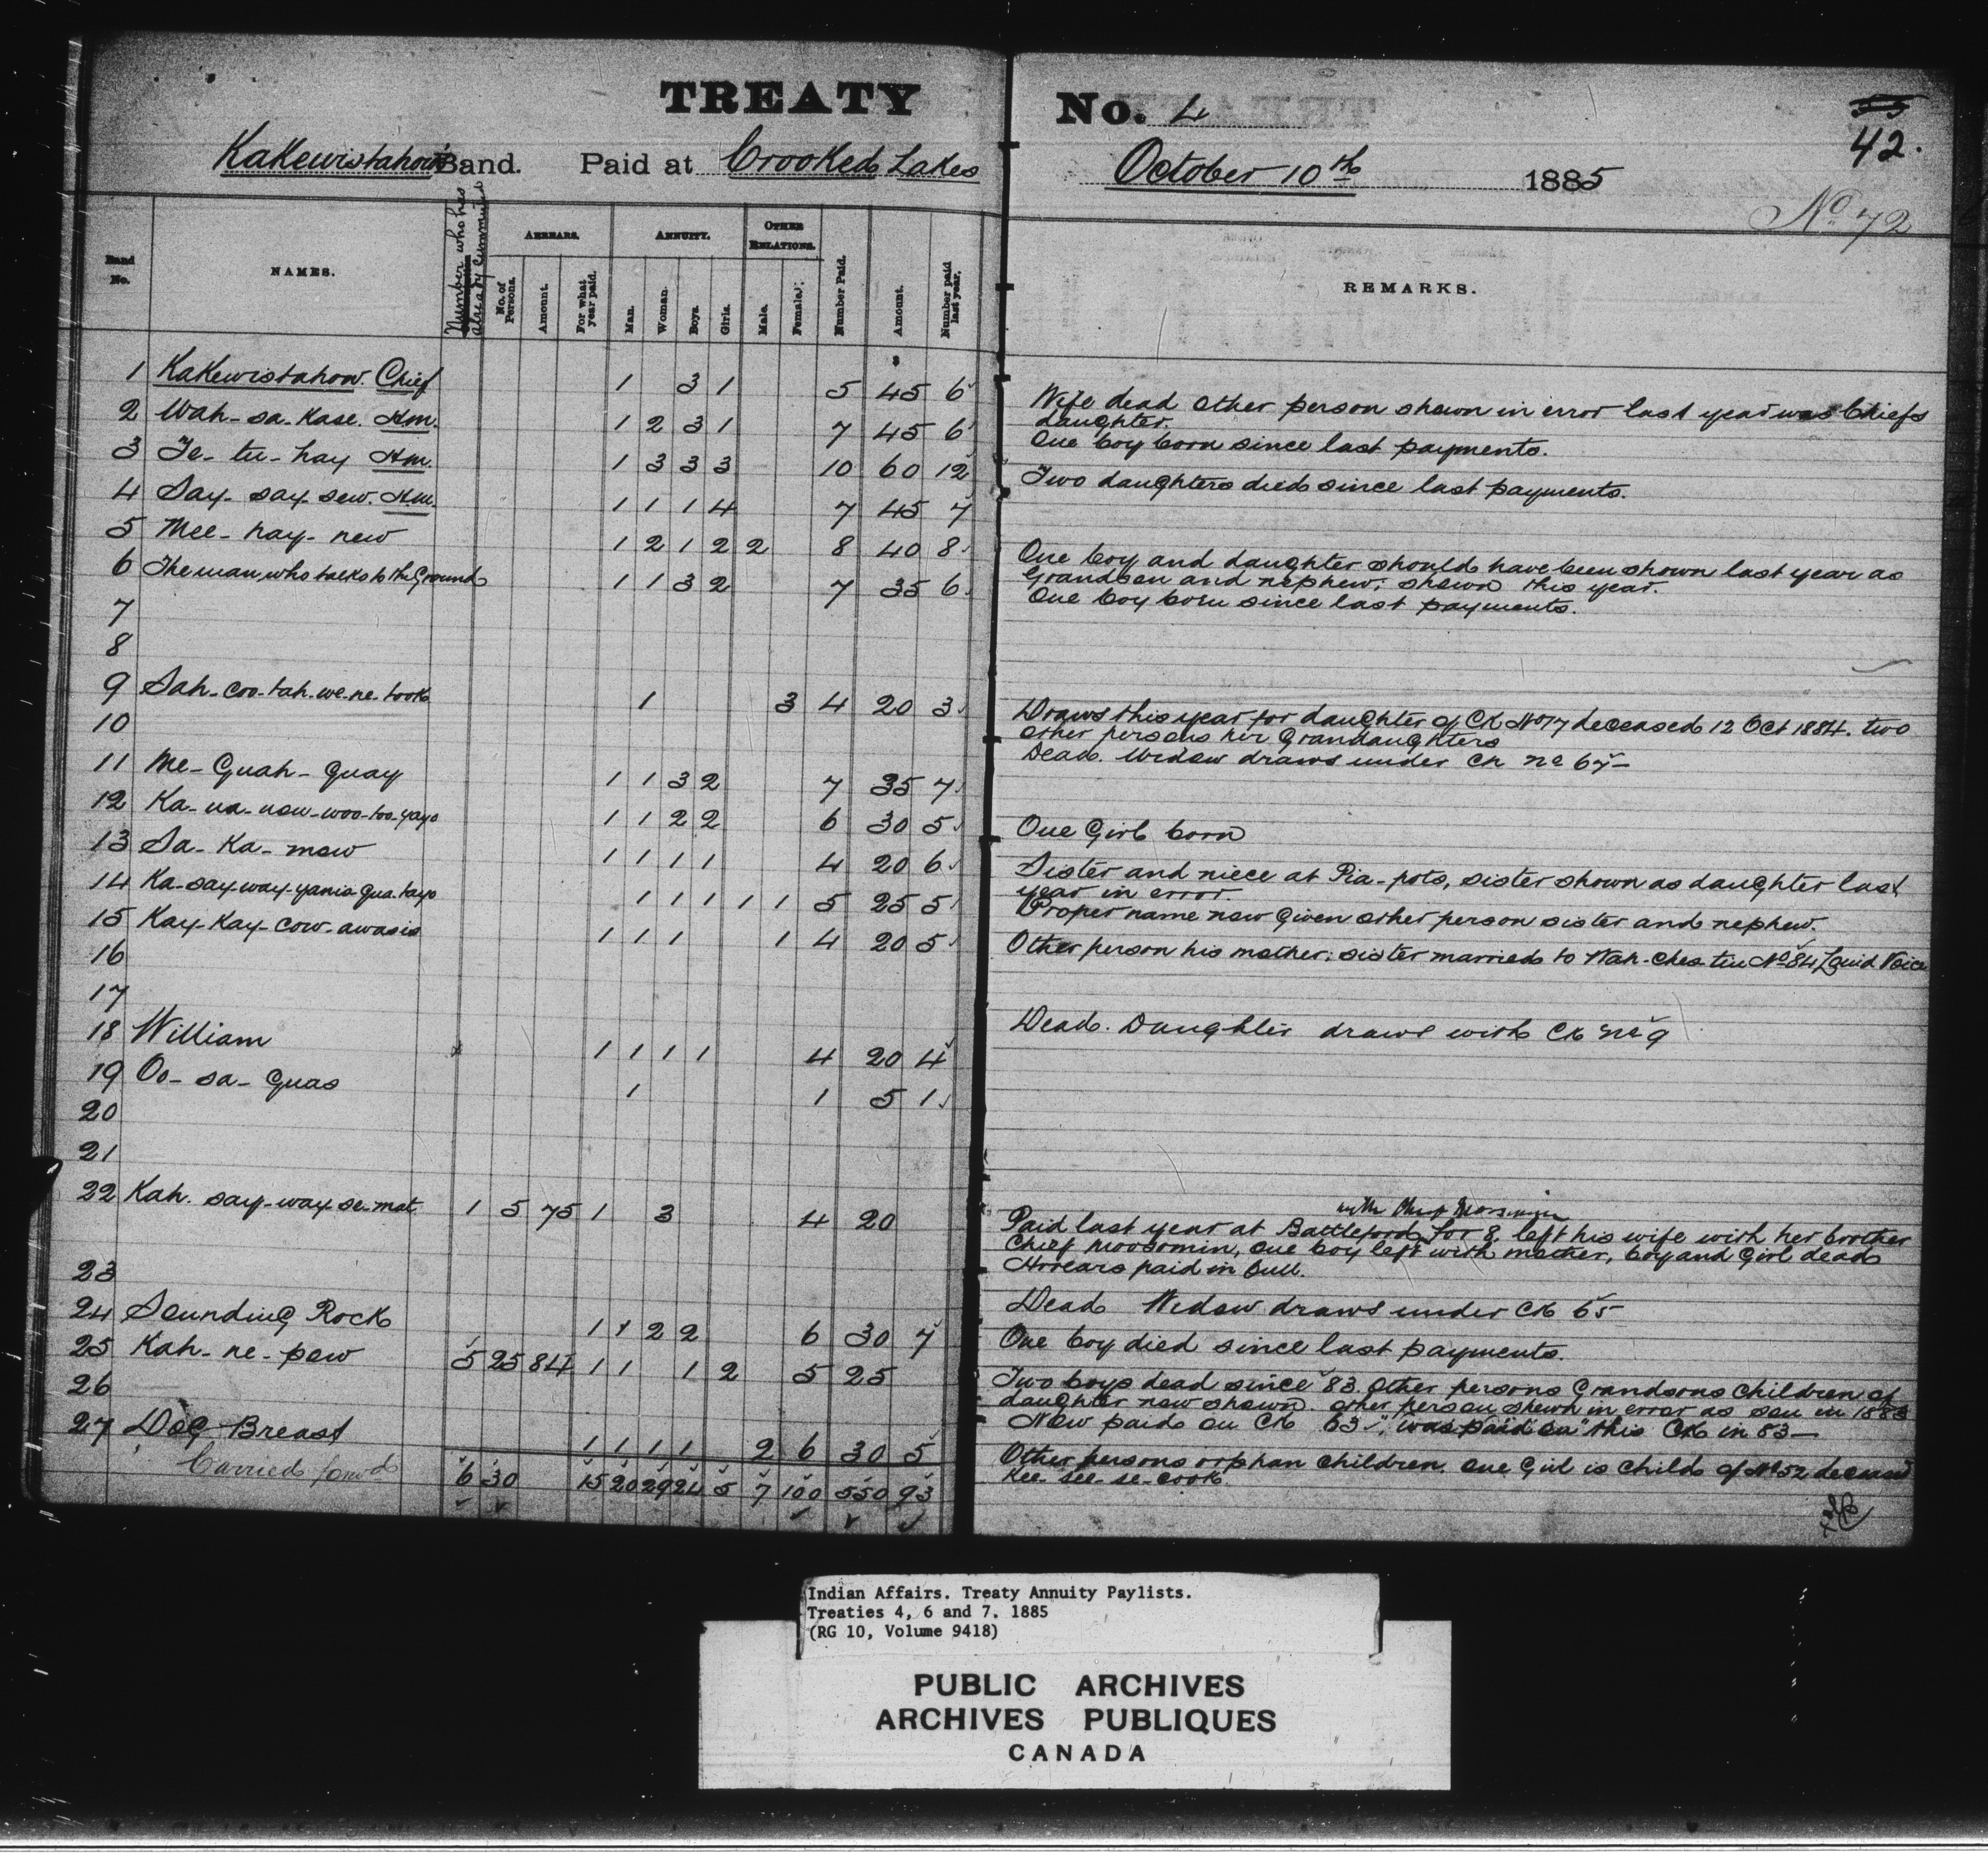 TREATY No. 4
55
42.
Kakewistahaw's Band. Paid at Crooked Lakes October 10th 1885
No 72
Band No.
NAMES.
Number who has already Commuted
ARREARS.
No. of Persons.
Amount.
For what year paid.
ANNUITY.
Man.
Woman.
Boys.
Girls.
OTHER RELATIONS.
Male.
Female.
Number Paid.
Amount.
Number paid last year.
REMARKS.
$
1 Kakewistahaw. Chief 1 3 1 5 45 6 Wife dead other person shown in error last year was Chiefs
daughter.
2 Wah-sa-Kase. Hm. 1 2 3 1 7 45 6 One boy born since last payments.
3 Te-tu-hay Hm. 1 3 3 3 10 60 12 Two daughters died since last payments.
4 Say-say-sew. Hm. 1 1 1 4 7 45 7
5 Mee-hay-new 1 2 1 2 2 8 40 8 One boy and daughter should have been shown last year as
Grandson and nephew; shewn this year.
6 The man who talks to the Ground 1 1 3 2 7 35 6 One boy born since last payments.
7
8
9 Sah-coo-tah-we-ne-took 1 3 4 20 3 Draws this year for daughter of CK No 17 deceased 12 Oct 1884. two
other persons her Grandaughters
10 Dead. Widow draws under CK no 67
11 Me-Guah-Guay 1 1 3 2 7 35 7
12 Ka-na-now-woo-too-yayo 1 1 2 2 6 30 5 One Girl born
13 Sa-Ka-mow 1 1 1 1 4 20 6 Sister and niece at Pia-pots, sister shown as daughter last
year in error.
14 Ka-say-way-yanis-qua-tayo 1 1 1 1 1 5 25 5 Proper name now Given other person sister and nephew.
15 Kay-Kay-cow-awasis 1 1 1 1 4 20 5 Other person his mother; sister married to Wah-ches-tin No 84 Loud Voice
16
17 Dead. Daughter draws with CK no 9
18 William x 1 1 1 1 4 20 4
19 Oo-sa-Guas 1 1 5 1
20
21
22 Kah-say-way-se-mat 1 5 75 1 3 4 20
with Chief Moosomin
Paid last year at Battleford for 8, left his wife with her brother
Chief Moosomin, one boy left with mother, boy and Girl dead
Arrears paid in full.
23 Dead Widow draws under CK 65
24 Sounding Rock 1 1 2 2 6 30 7 One boy died since last payments.
25 Kah-ne-pow 5 25 84 1 1 1 2 5 25 Two boys dead since 83. Other persons Grandsons children of
daughter now shown. other person shewn in error as son in 1883
26 Now paid on CK 63. was paid on this CK in 83
27 Dog Breast 1 1 1 1 2 6 30 5 Other persons orphan children. one Girl is child of No 52 deceased
Kee-see-se-cook.
Carried forwd 6 30 15 20 29 24 5 7 100 550 93
Indian Affairs. Treaty Annuity Paylists.
Treaties 4, 6 and 7. 1885
(RG 10, Volume 9418)
PUBLIC ARCHIVES
ARCHIVES PUBLIQUES
CANADA